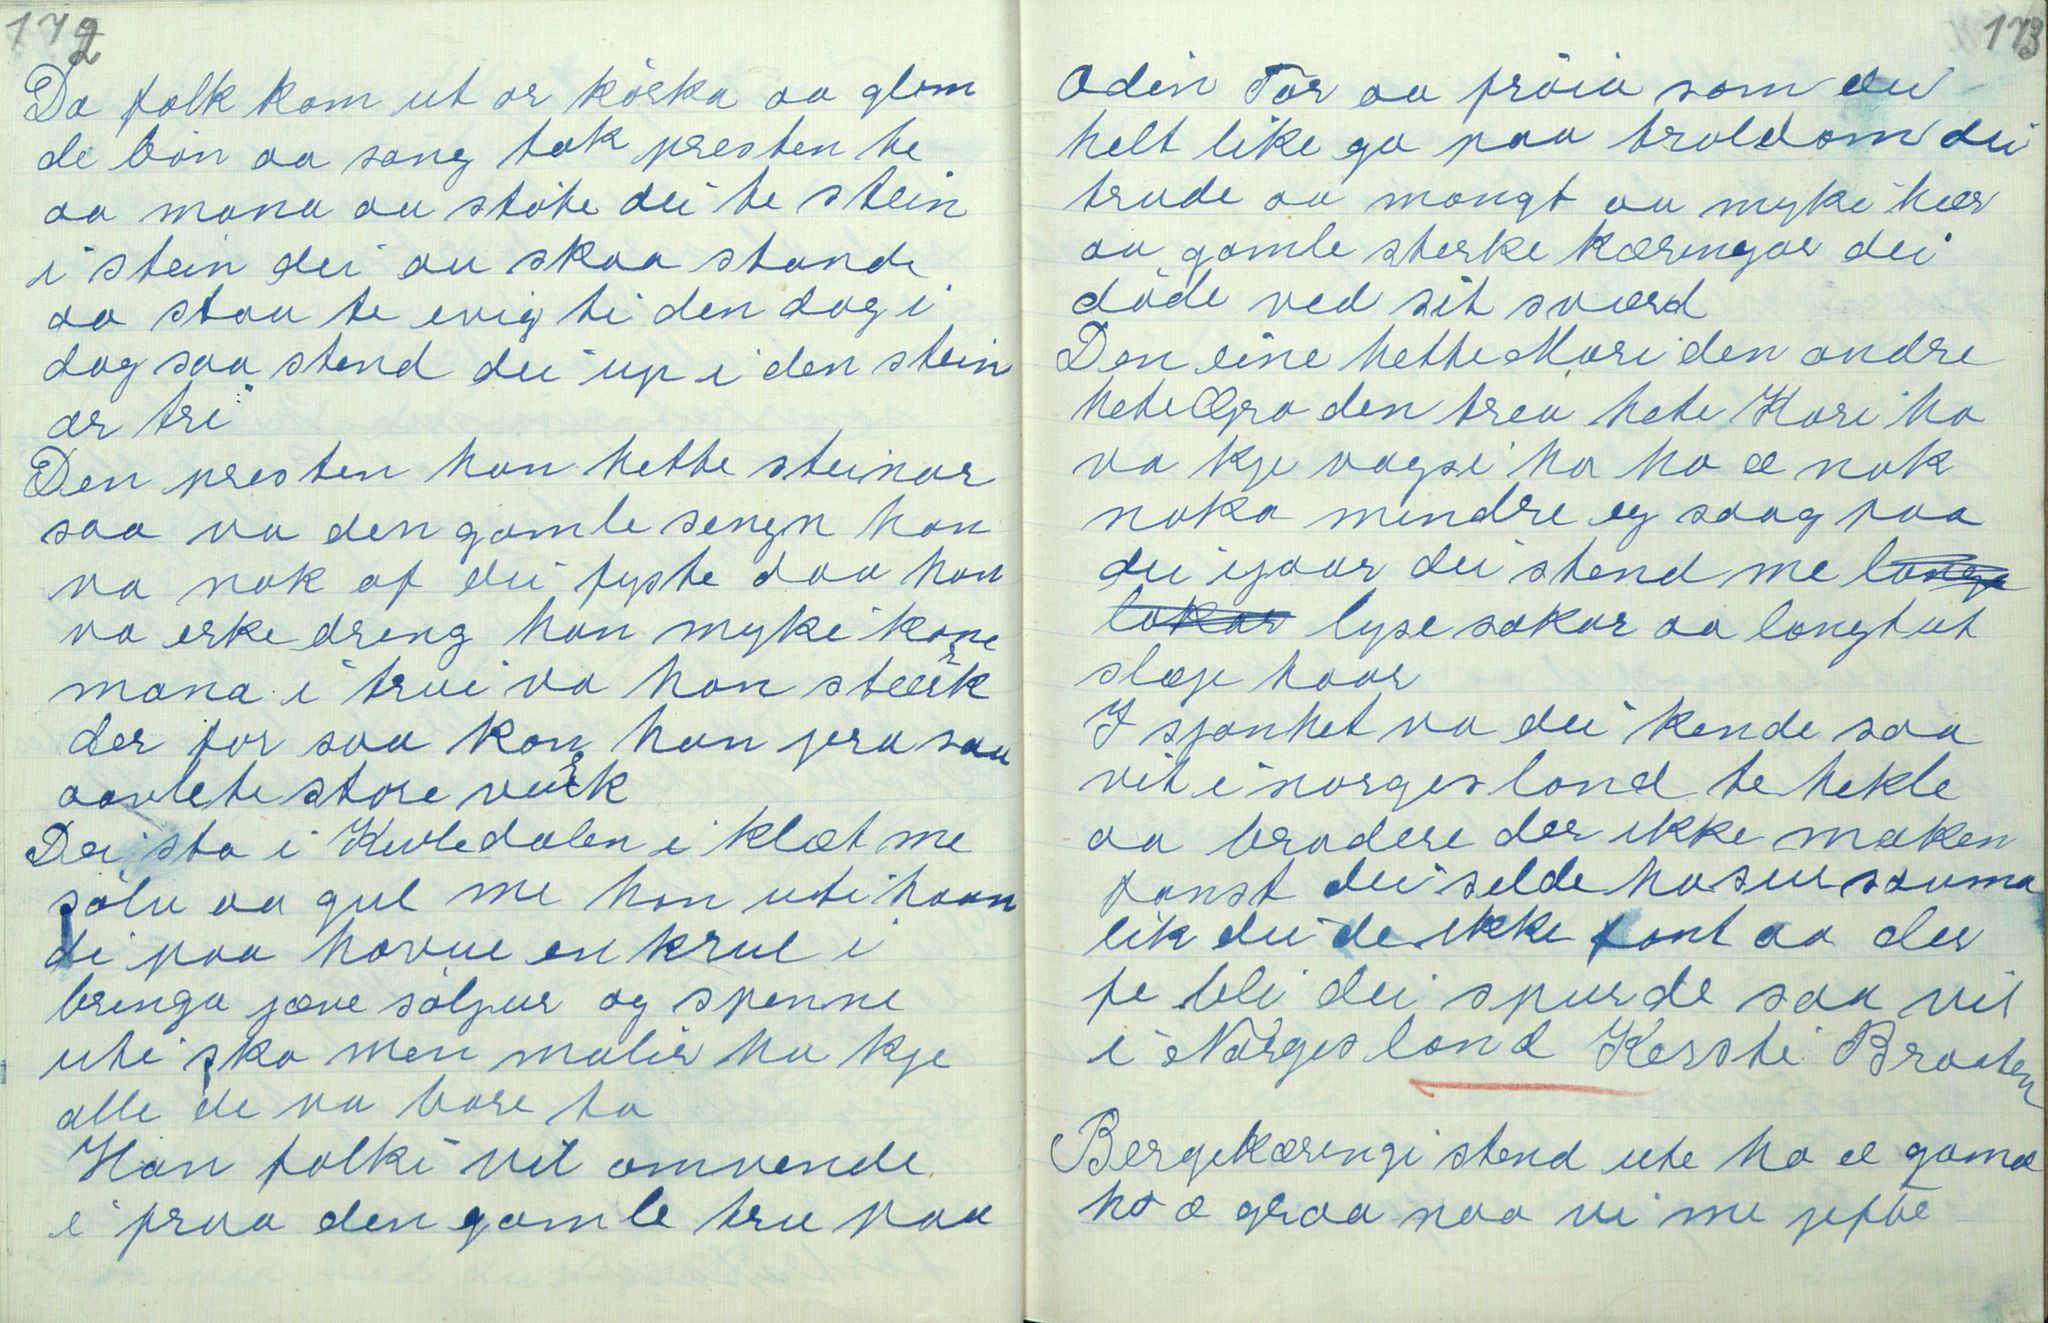 172
Da folk kom ut or körka aa glöm
de bön aa sang tok presten te
aa mana aa stöte dei te stein
i stein dei au skaa stande
aa staa te evig ti den dag i
dag saa stend dei up i den stein
ær tri
Den presten han hette steinar
saa va den gamle sengn han
va nok af dei fyste daa han
va erke dreng han myki kone
mana i trui va han stærk
der for saa kon han jera saa
aavlete store verk
Dei sto i Kivledalen i klæt me
sölv aa gul me hon uti haan
di paa hovue en krul i
bringa jæve söljur og spenne
uti sko men malir ha kje
alle de va bare to
Han folki vil omvende
i fraa den gamle tru paa
173
Odin Tor aa fröia som dei
helt like go paa troldom dei
trude aa mangt aa myki hær
aa gamle sterke kæringar dei
döde ved sit sværd
Den eine hette Mari den andre
hete Ægro den trea hete Kari ho
va kje vagsi ho ho æ nok
noko mindre eg saag paa
dei igaar dei stend me lange
lokar lyse sokar aa langt ut
slæje haar
I sjönhet va dei kende saa
vit i norges land te hekle
aa brodere der ikke maken
fanst dei selde hosur sauma
lik dei de ikke fant aa der
fe bli dei spurde saa vit
i Norges land Kersti Braaten
Bergekæringi stend ute ho æ gamal
ho æ graa naa vi me jefte